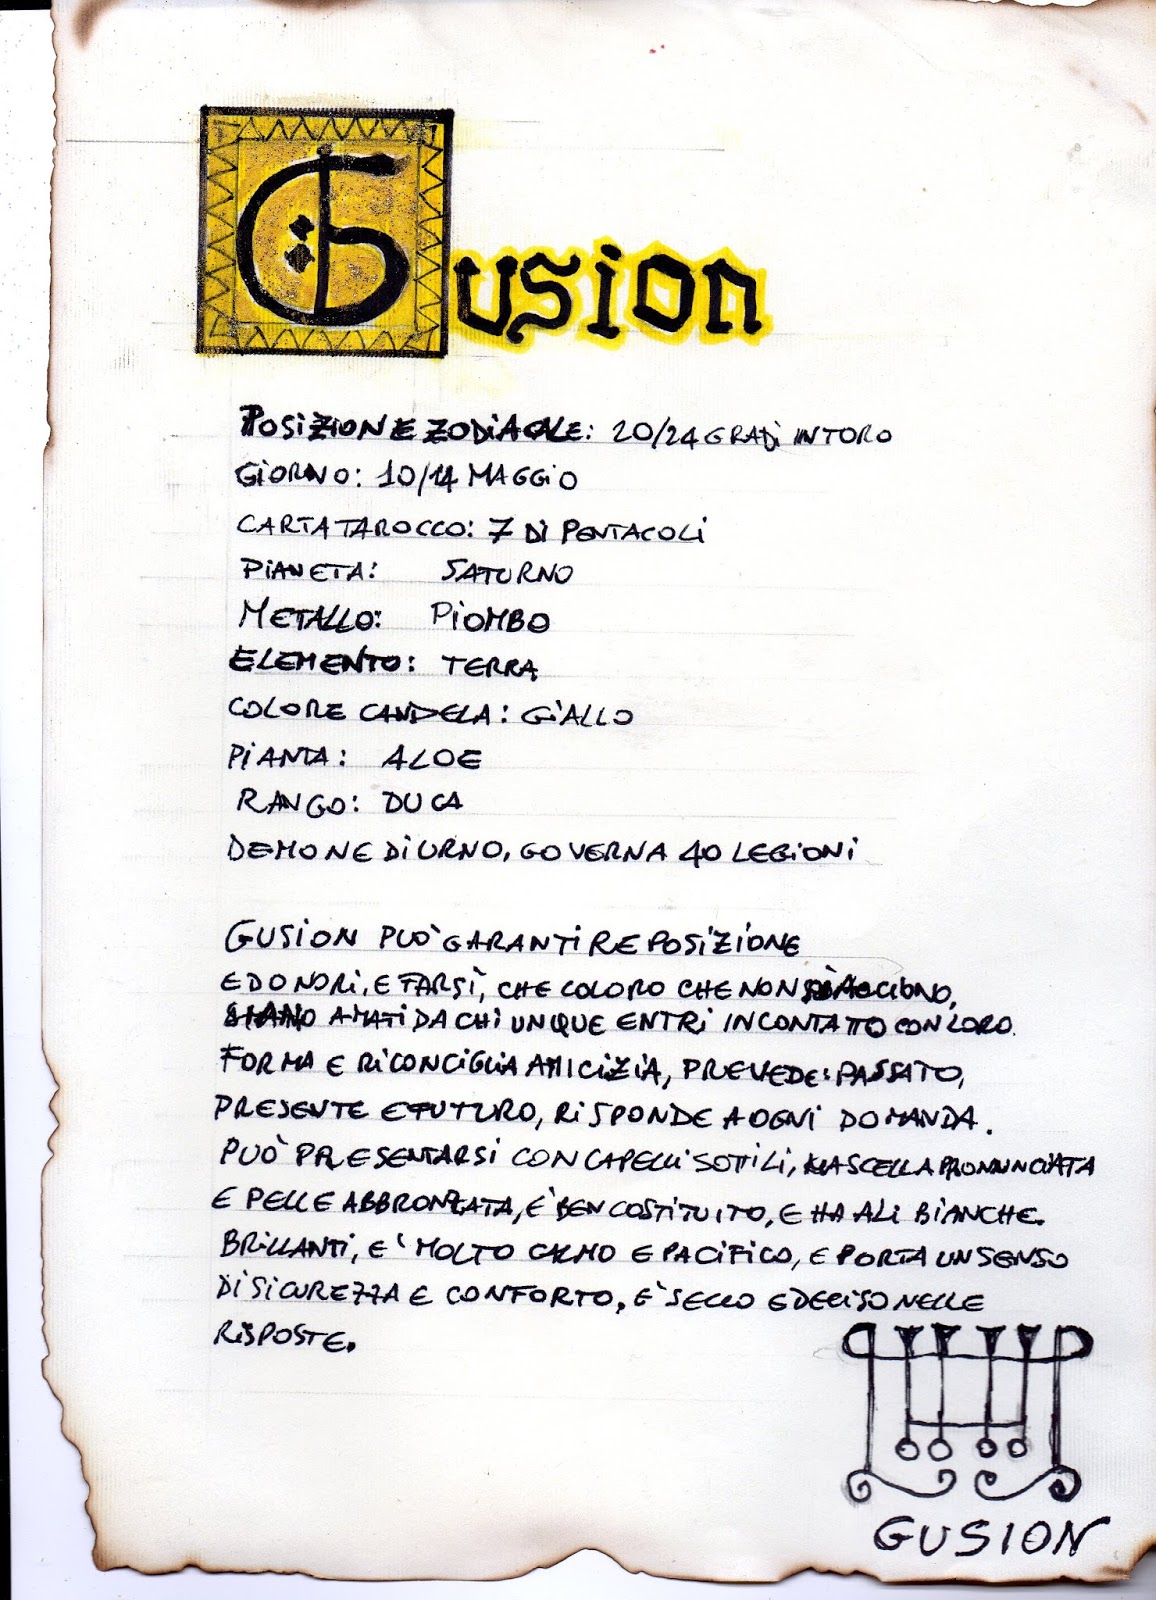 Gusion
POSIZIONE ZODIACALE: 20/24 GRADI IN TORO
GIORNO: 10/14 MAGGIO
CARTA TAROCCO: 7 DI PENTACOLI
PIANETA: SATURNO
METALLO: PIOMBO
ELEMENTO: TERRA
COLORE CANDELA: GIALLO
PIANTA: ALOE
RANGO: DUCA
DEMONE DIURNO, GOVERNA 40 LEGIONI
GUSION PUÒ GARANTIRE POSIZIONE
ED ONORI, E FARSÌ, CHE COLORO CHE NON PIACCIONO,
SIANO AMATI DA CHIUNQUE ENTRI IN CONTATTO CON LORO.
FORMA E RICONCIGLIA AMICIZIA, PREVEDE: PASSATO,
PRESENTE E FUTURO, RISPONDE A OGNI DOMANDA.
PUÒ PRESENTARSI CON CAPELLI SOTTILI, MASCELLA PRONUNCIATA
E PELLE ABBRONZATA, E' BEN COSTITUITO, E HA ALI BIANCHE.
BRILLANTI, E' MOLTO CALMO E PACIFICO, E PORTA UN SENSO
DI SICUREZZA E CONFORTO, E' SECCO E DECISO NELLE
RISPOSTE.
GUSION